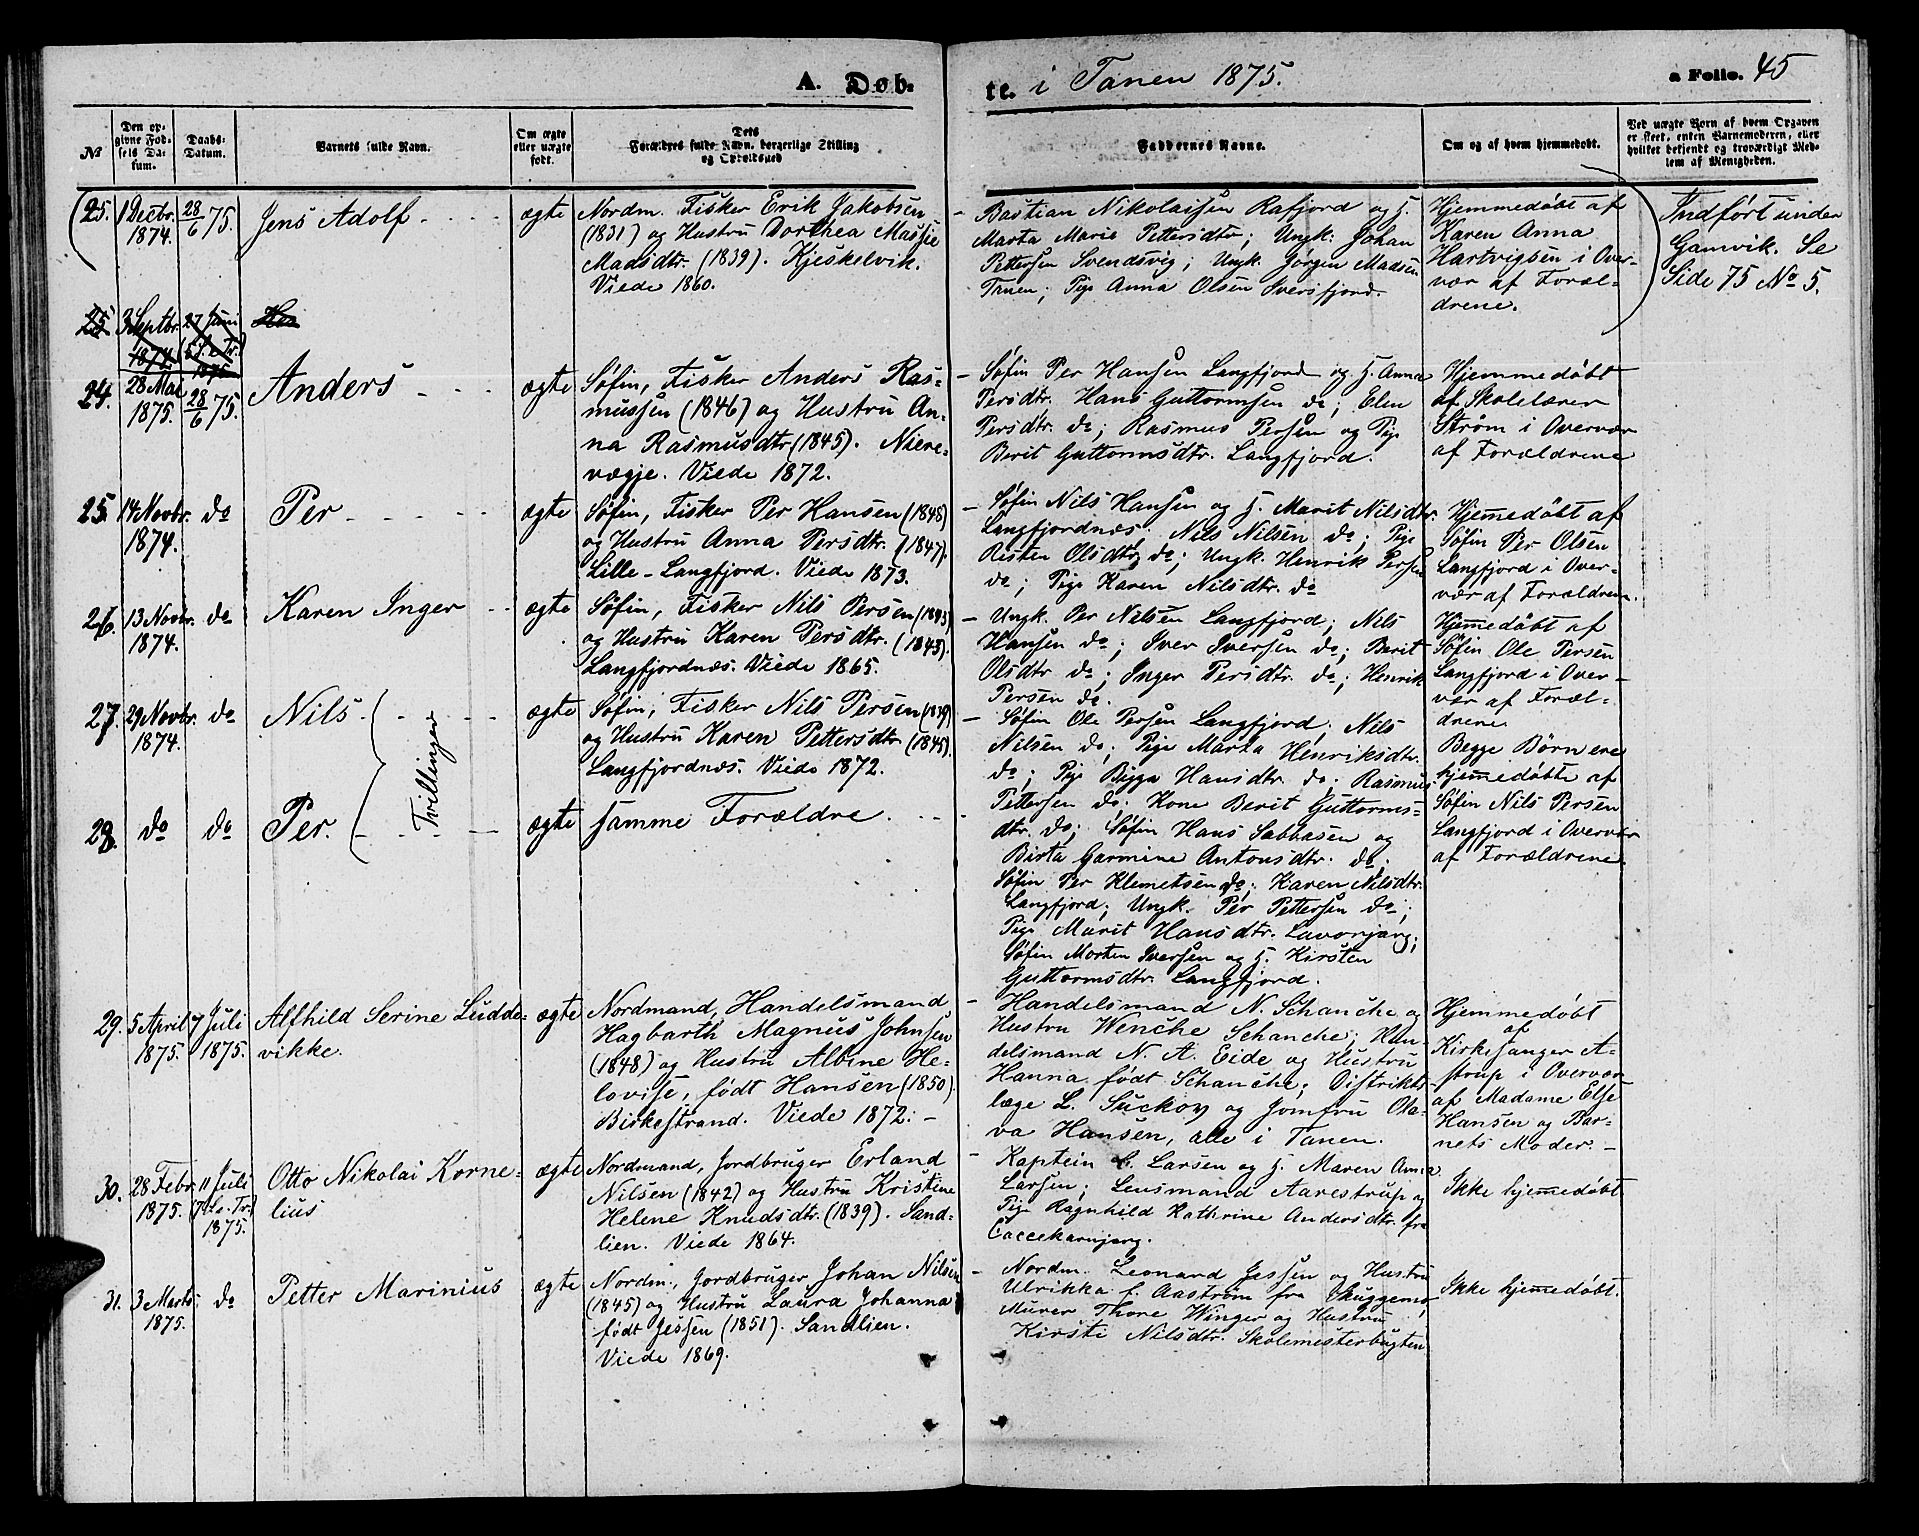 A. Døb-
te. i Tanen 1875.
a Folio. 45
№
Den opgivne Fødsels Datum.
Daabs-Datum.
Barnets fulde Navn.
Om ægte eller uægte født.
Forældres fulde Navn, borgerlige Stilling og Opholdssted
Faddernes Navne.
Om og af hvem hjemmedøbt.
Ved uægte Børn af hvem Opgaven er skeet, enten Barnemoderen, eller hvilket bekjendt og troværdigt Medlem af Menigheden.
(25.
1 Decbr.
1874.
28/6 75.
Jens Adolf
ægte
Nordm. Fisker Erik Jakobsen
(1831) og Hustru Dorthea Massie
Madsdtr. (1839). Kjeskelvik.
Viede 1860.
Bastian Nikolaissen Rafjord og H.
Marta Marie Pettersdtr; Ungk. Johan
Pettersen Svendsvig; Ungk. Jørgen Madsen
Tanen; Pige Anna Olsen Iversfjord.
Hjemmedøbt af
Karen Anna
Hartvigsen i Over-
vær af Foræl-
drene.
Indført under
Gamvik. Se
Side 75 No 5.
25
3 Septbr.
1874
27 Juni
1875
24.
28 Mai
1875.
28/6 75.
Anders
ægte
Søfin, Fisker Anders Ras-
mussen (1846) og Hustru An-
na Rasmusdtr (1845). Niere-
vægje. Viede 1872.
Søfin Per Hansen Langfjord og H. Anna
Persdtr. Hans Guttormsen do; Elen
Persdtr. do; Rasmus Persen og Pige
Berit Guttormsdtr. Langfjord.
Hjemmedøbt
af Skolelærer
Strøm i Overvær
af Forældrene
25.
14 Novbr.
1874.
do
Per
ægte
Søfin, Fisker Per Hansen (1848)
og Hustru Anna Persdtr. (1847).
Lille-Langfjord. Viede 1873.
Søfin Nils Hansen og H. Marit Nilsdtr.
Langfjordnæs; Nils Nilsen do; Pige
Risten Olsdtr do; Ungk. Henrik Persen
do; Pige Karen Nilsdtr. do
Hjemmedøbt af
Søfin Per Olsen
Langfjord i Over-
vær af Forældrene.
26.
13 Novbr.
1874.
do
Karen Inger
ægte
Søfin, Fisker Nils Persen (1843)
og Hustru Karen Persdtr. (1843).
Langfjordnæs. Viede 1865.
Ungk. Per Nilsen Langfjord; Nils
Hansen do; Iver Iversen do; Berit
Olsdtr do; Inger Persdtr. do; Henrik
Persen do.
Hjemmedøbt af
Søfin Ole Persen
Langfjord i Over-
vær af Foræl-
drene.
27.
29 Novbr.
1874.
do
Nils
Tvillinger
ægte
Søfin, Fisker Nils Persen (1849)
og Hustru Karen Pettersdtr. (1845).
Langfjordnæs. Viede 1872.
Søfin Ole Persen Langfjord; Nils
Nilsen do; Pige Marta Henriksdtr.
do; Pige Bigga Hansdtr. do; Rasmus
Pettersen do; Kone Berit Guttorms-
dtr. do; Søfin Hans Sabbasen og
Birta Garmine Antonsdtr. do;
Søfin Per Klemetsen do; Karen Nilsdtr.
Langfjord; Ungk. Per Pettersen do;
Pige Marit Hansdtr. Lavonjarg;
Søfin Morten Iversen og H. Kirsten
Guttormsdtr. Langfjord.
Begge Børn ere
hjemmedøbte af
Søfin Nils Persen
Langfjord i Overvær
af Forældrene.
28.
do
do
Per.
ægte
samme Forældre.
29.
5 April
1875.
7 Juli
1875.
Alfhild Serine Ludde-
vikke.
ægte
Nordmand, Handelsmand
Hagbarth Magnus Johnsen
(1848) og Hustru Albine He-
lovise, født Hansen (1850).
Birkestrand. Viede 1872. -
Handelsmand N. Schanche og
Hustru Wenche Schanche; Han-
delsmand N. A. Eide og Hustru
Hanna født Schanche; Distrikts-
læge L. Suckow og Jomfru Ola-
va Hansen, alle i Tanen.
Hjemmedøbt
af
Kirkesanger A-
strup i Overvær
af Madame Else
Hansen og Bar-
nets Moder. -
30.
28 Febr
1875.
11 Juli
(7 S. e. Tr.)
1875.
Otto Nikolai Korne-
lius
ægte
Nordmand, Jordbruger Erland
Nilsen (1842) og Hustru Kristine
Helene Knudsdtr. (1839). Sand-
lien. Viede 1864.
Kaptein C. Larsen og H. Maren Anna
Larsen; Lensmand Aarestrup og
Pige Ragnhild Kathrine Andersdtr. fra
Caccekarnjarg.
Ikke hjemmedøbt
31.
3 Marts
1875.
do
Petter Marinius
ægte
Nordm., Jordbruger Johan Nilsen
(1845) og Hustru Laura Johanna
født Jessen (1851). Sandlien.
Viede 1869.
Nordm. Leonard Jessen og Hustru
Ulrikka f. Aastrøm fra Skuggemo;
Murer Thore Winger og Hustru
Kirsti Nilsdtr. Skolemesterbugten
Ikke hjemmedøbt.